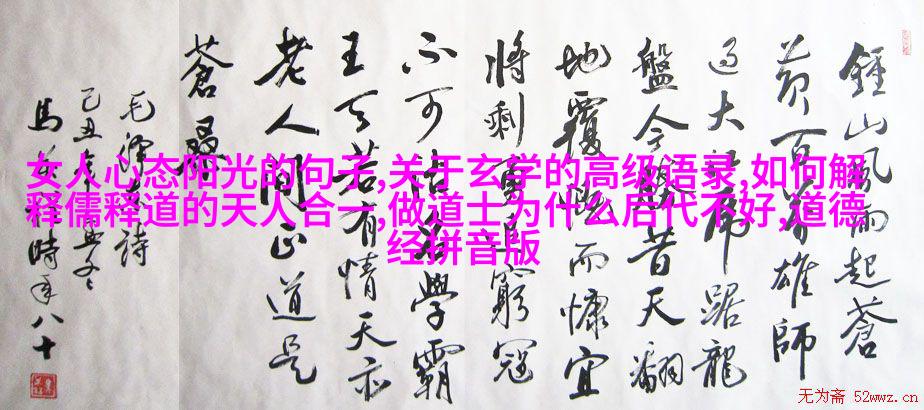 鍾山風雨起蒼
黄百万雄師
过大江虎踞龍
盤今勝昔天翻
地覆慨而慷宜
將剩勇追窮寇
不可沽名學霸
王天若有情天亦
老人间正道是
蒼桑
毛澤東詩
己丑年冬
馬時年八十
女人心态阳光的句子,关于玄学的高级语录,如何解
释儒释道的天人合一,做道士为什么后代不好,道德
经拼音版
无为斋 52wwz.cn